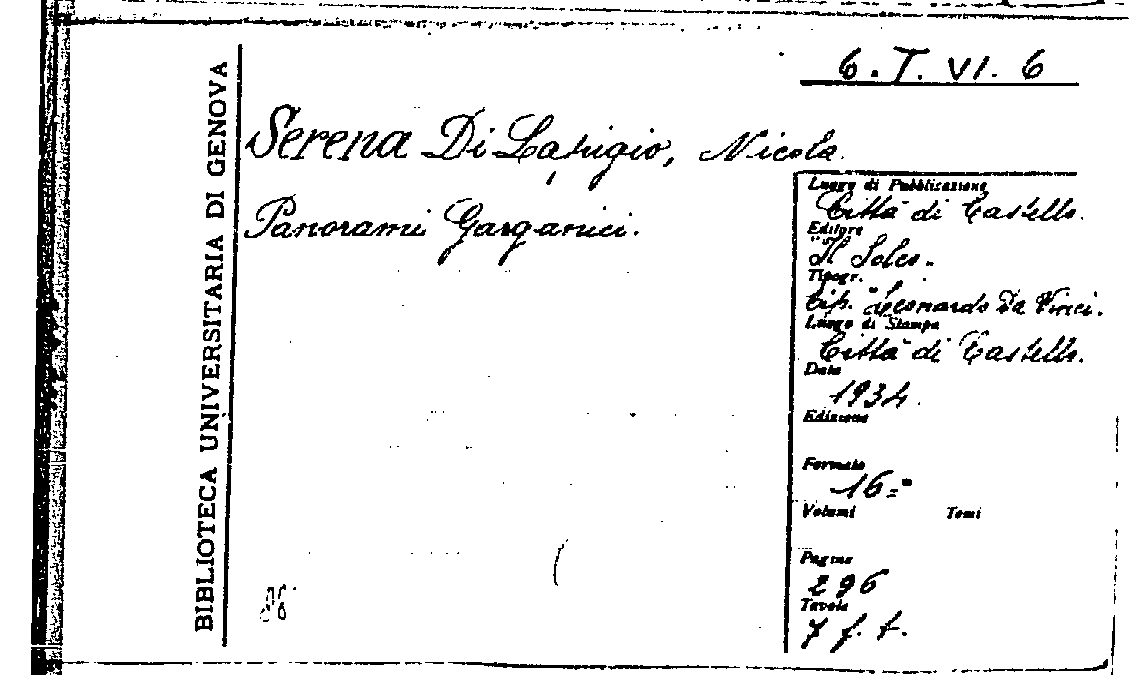 6. T. VI. 6
BIBLIOTECA UNIVERSITARIA DI GENOVA
Serena Di Lapigio, Nicola
Panorami Garganici.
Luogo di Pubblicazione
Città di Castello.
Editore
"Il Solco.
Tipogr.
Tip. "Leonardo Da Vinci.
Luogo di Stampa
Città di Castello.
Data
1934.
Edizione
Formato
16=°
Volumi Tomi
Pagine
296
Tavole
7 f. t.